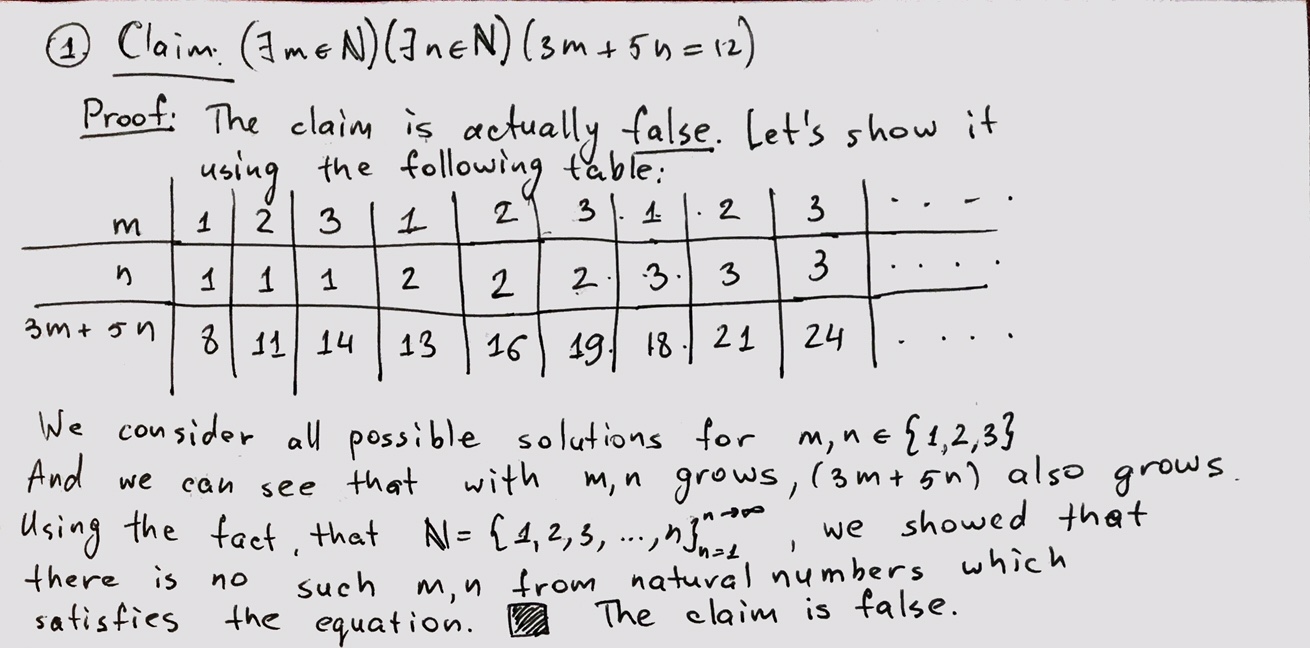 ① Claim: (∃m∈ℕ)(∃n∈ℕ)(3m+5n=12)
Proof: The claim is actually false. Let's show it
using the following table:
m | 1 | 2 | 3 | 1 | 2 | 3 | 1 | 2 | 3 | . . . .
n | 1 | 1 | 1 | 2 | 2 | 2 | 3 | 3 | 3 | . . . .
3m+5n | 8 | 11 | 14 | 13 | 16 | 19 | 18 | 21 | 24 | . . . .
We consider all possible solutions for m,n∈{1,2,3}
And we can see that with m,n grows, (3m+5n) also grows.
Using the fact, that ℕ={1,2,3,...,n}ₙ₌₁ⁿ→∞, we showed that
there is no such m,n from natural numbers which
satisfies the equation. ▨ The claim is false.